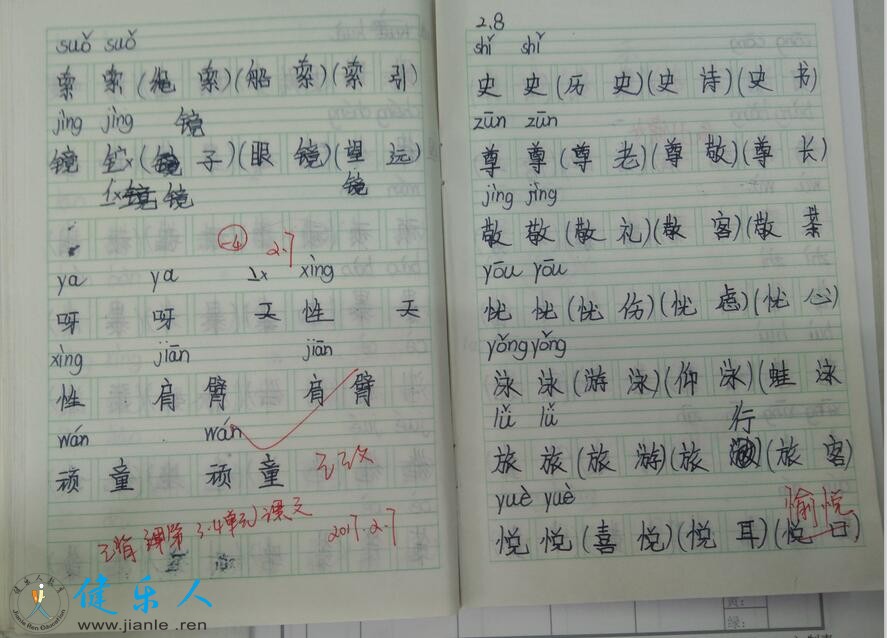 suǒ suǒ
索 索(绳 索)(船 索)(索 引)
jìng jìng 镜
镜 (镜 子)(眼 镜)(望 远
镜 镜 镜
-4 2.7
ya ya xìng
呀 呀 天 性 天
xìng jiān jiān
性 肩 臂 肩 臂
wán wán
顽 童 顽 童 已改
已背 课第3.4单元课文 2017.2.7
健乐人教育
Jianle Ren Education
健乐人
www.jianle.ren
2.8
shǐ shǐ
史 史(历 史)(史 诗)(史 书)
zūn zūn
尊 尊(尊 老)(尊 敬)(尊 长)
jìng jìng
敬 敬(敬 礼)(敬 客)(敬 茶
yōu yōu
忧 忧(忧 伤)(忧 虑)(忧 心)
yǒng yǒng
泳 泳(游 泳)(仰 泳)(蛙 泳
lǚ lǚ 行
旅 旅(旅 游)(旅 (旅 客)
yuè yuè 愉悦
悦 悦(喜 悦)(悦 耳)(悦 )
绿: